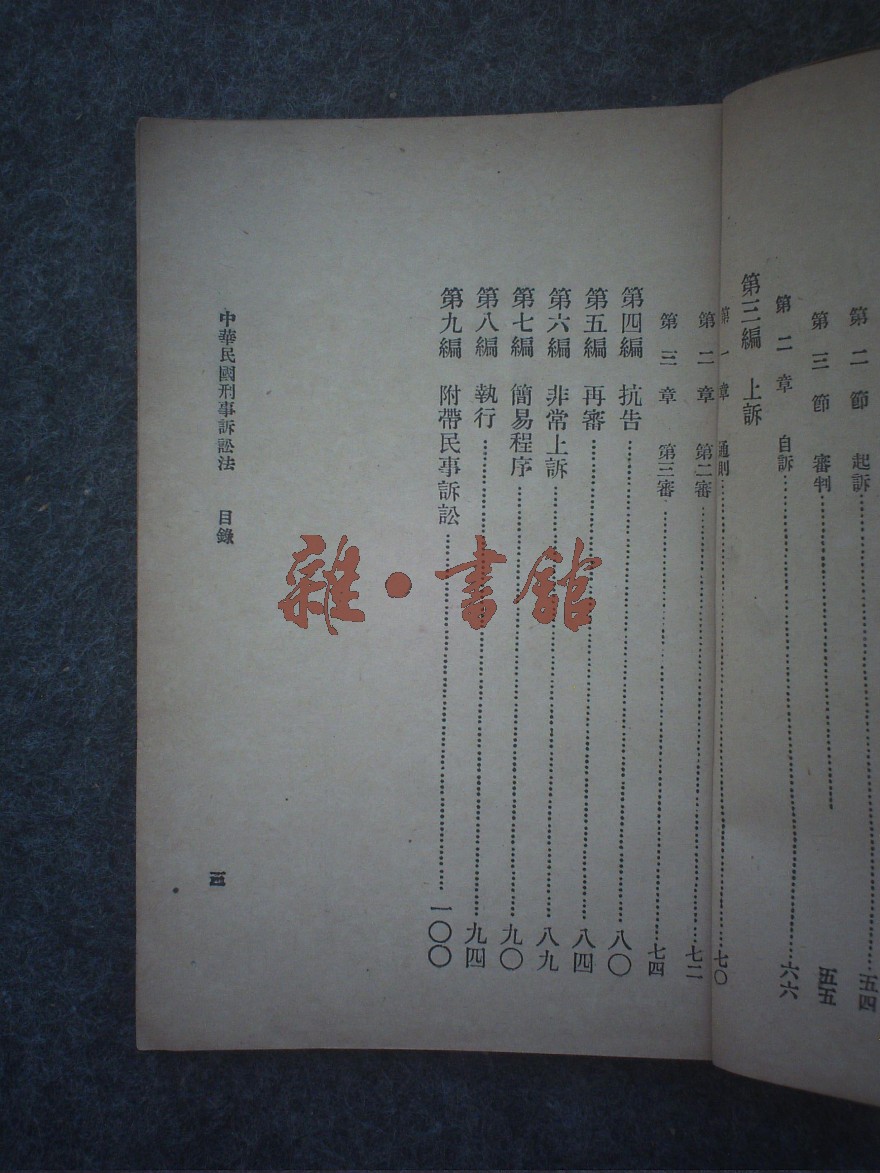 第二節 起訴……五四
第三節 審判……五五
第二章 自訴……六六
第三編 上訴
第一章 通則……七〇
第二章 第二審……七二
第三章 第三審……七四
第四編 抗告……八〇
第五編 再審……八四
第六編 非常上訴……八九
第七編 簡易程序……九〇
第八編 執行……九四
第九編 附帶民事訴訟……一〇〇
中華民國刑事訴訟法 目錄
雜·書館